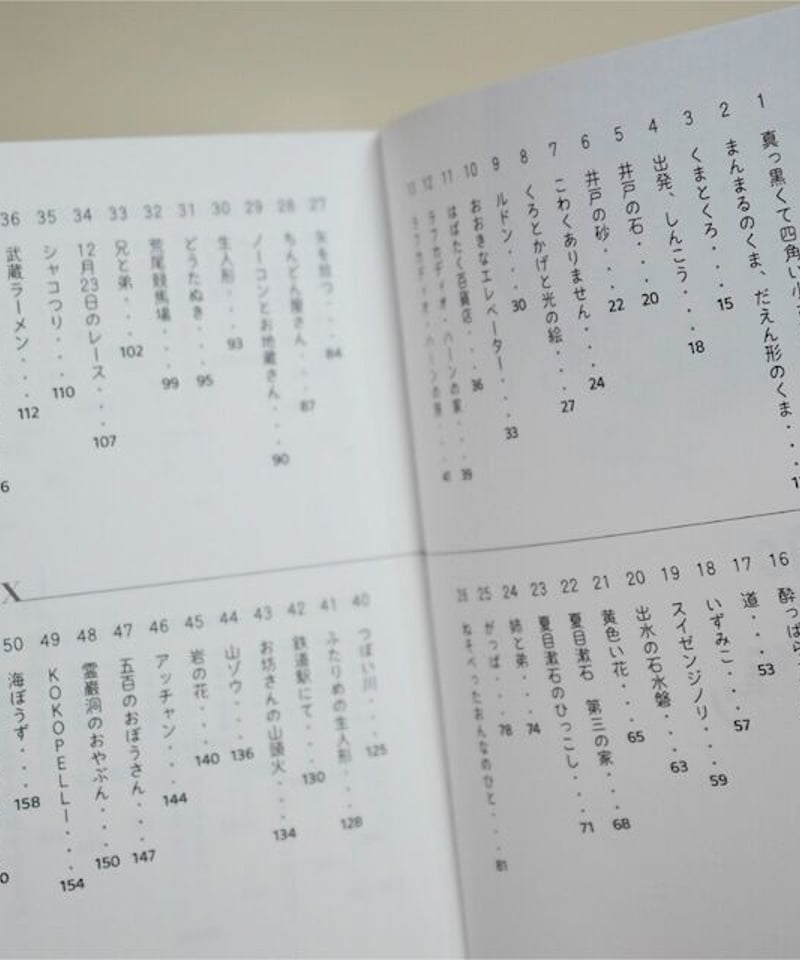 1 真っ黒くて四角い小
2 まんまるのくま、だえん形のくま・・・・
3 くまとくろ・・・15
4 出発、しんこう・・・・18
5 井戸の石・・・20
6 井戸の砂・・・22
7 こわくありません・・・・24
8 くろとかげと光の絵・・・・27
9 ルドン・・・30
10 おおきなエレベーター・・・・33
11 はばたく百貨店・・・・36
12 ラフカディオ・ハーンの家・・・・39
13 ラフカディオ・ハーンの・・・・41
16 酔っぱら
17 道・・・53
18 いずみこ・・・57
19 スイゼンジノリ・・・59
20 出水の石水磐・・・・63
21 黄色い花・・・・65
22 夏目漱石 第三の家・・・68
23 夏目漱石のひっこし・・・・71
24 姉と弟・・・・74
25 がっぱ・・・・78
26 ねそべったおんなのひと・・・・81
27 矢を放つ・・・・84
28 ちんどん屋さん・・・・87
29 ノーコンとお地蔵さん・・・・90
30 生人形・・・・93
31 どうたぬき・・・・95
32 荒尾競馬場・・・・99
33 兄と弟・・・・102
34 12月23日のレース・・・・107
35 シャコつり・・・・110
36 武蔵ラーメン・・・・112
6
X
40 つぼい川・・・・125
41 ふたりめの生人形・・・・128
42 鉄道駅にて・・・・130
43 お坊さんの山頭火・・・・134
44 山ゾウ・・・・136
45 岩の花・・・・140
46 アッチャン・・・・144
47 五百のおぼうさん・・・・147
48 霊巌洞のおやぶん・・・・150
49 KOKOPELLI・・・・154
50 海ぼうず・・・・158
0